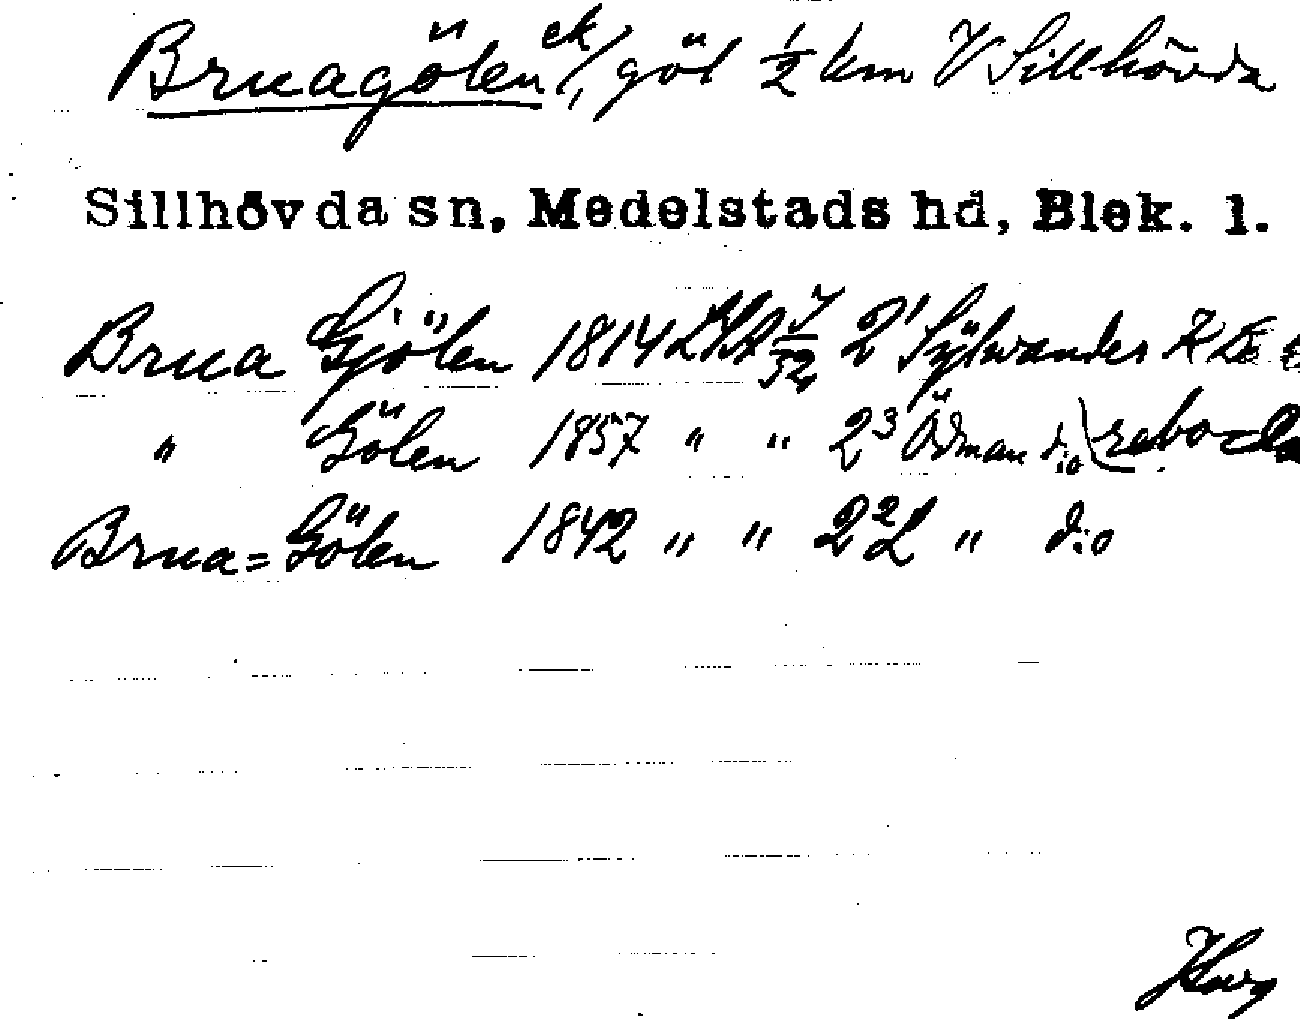 Bruagölen ek/, göl ½ km V Sillhövda
Sillhövda sn, Medelstads hd, Blek. l.
Brua Gjölen 1814 LSA 7/32 2¹ Sylwander
" Gölen 1857 " " 2³ Ödman d:o
Brua=Gölen 1842 " " 2² L " d:o